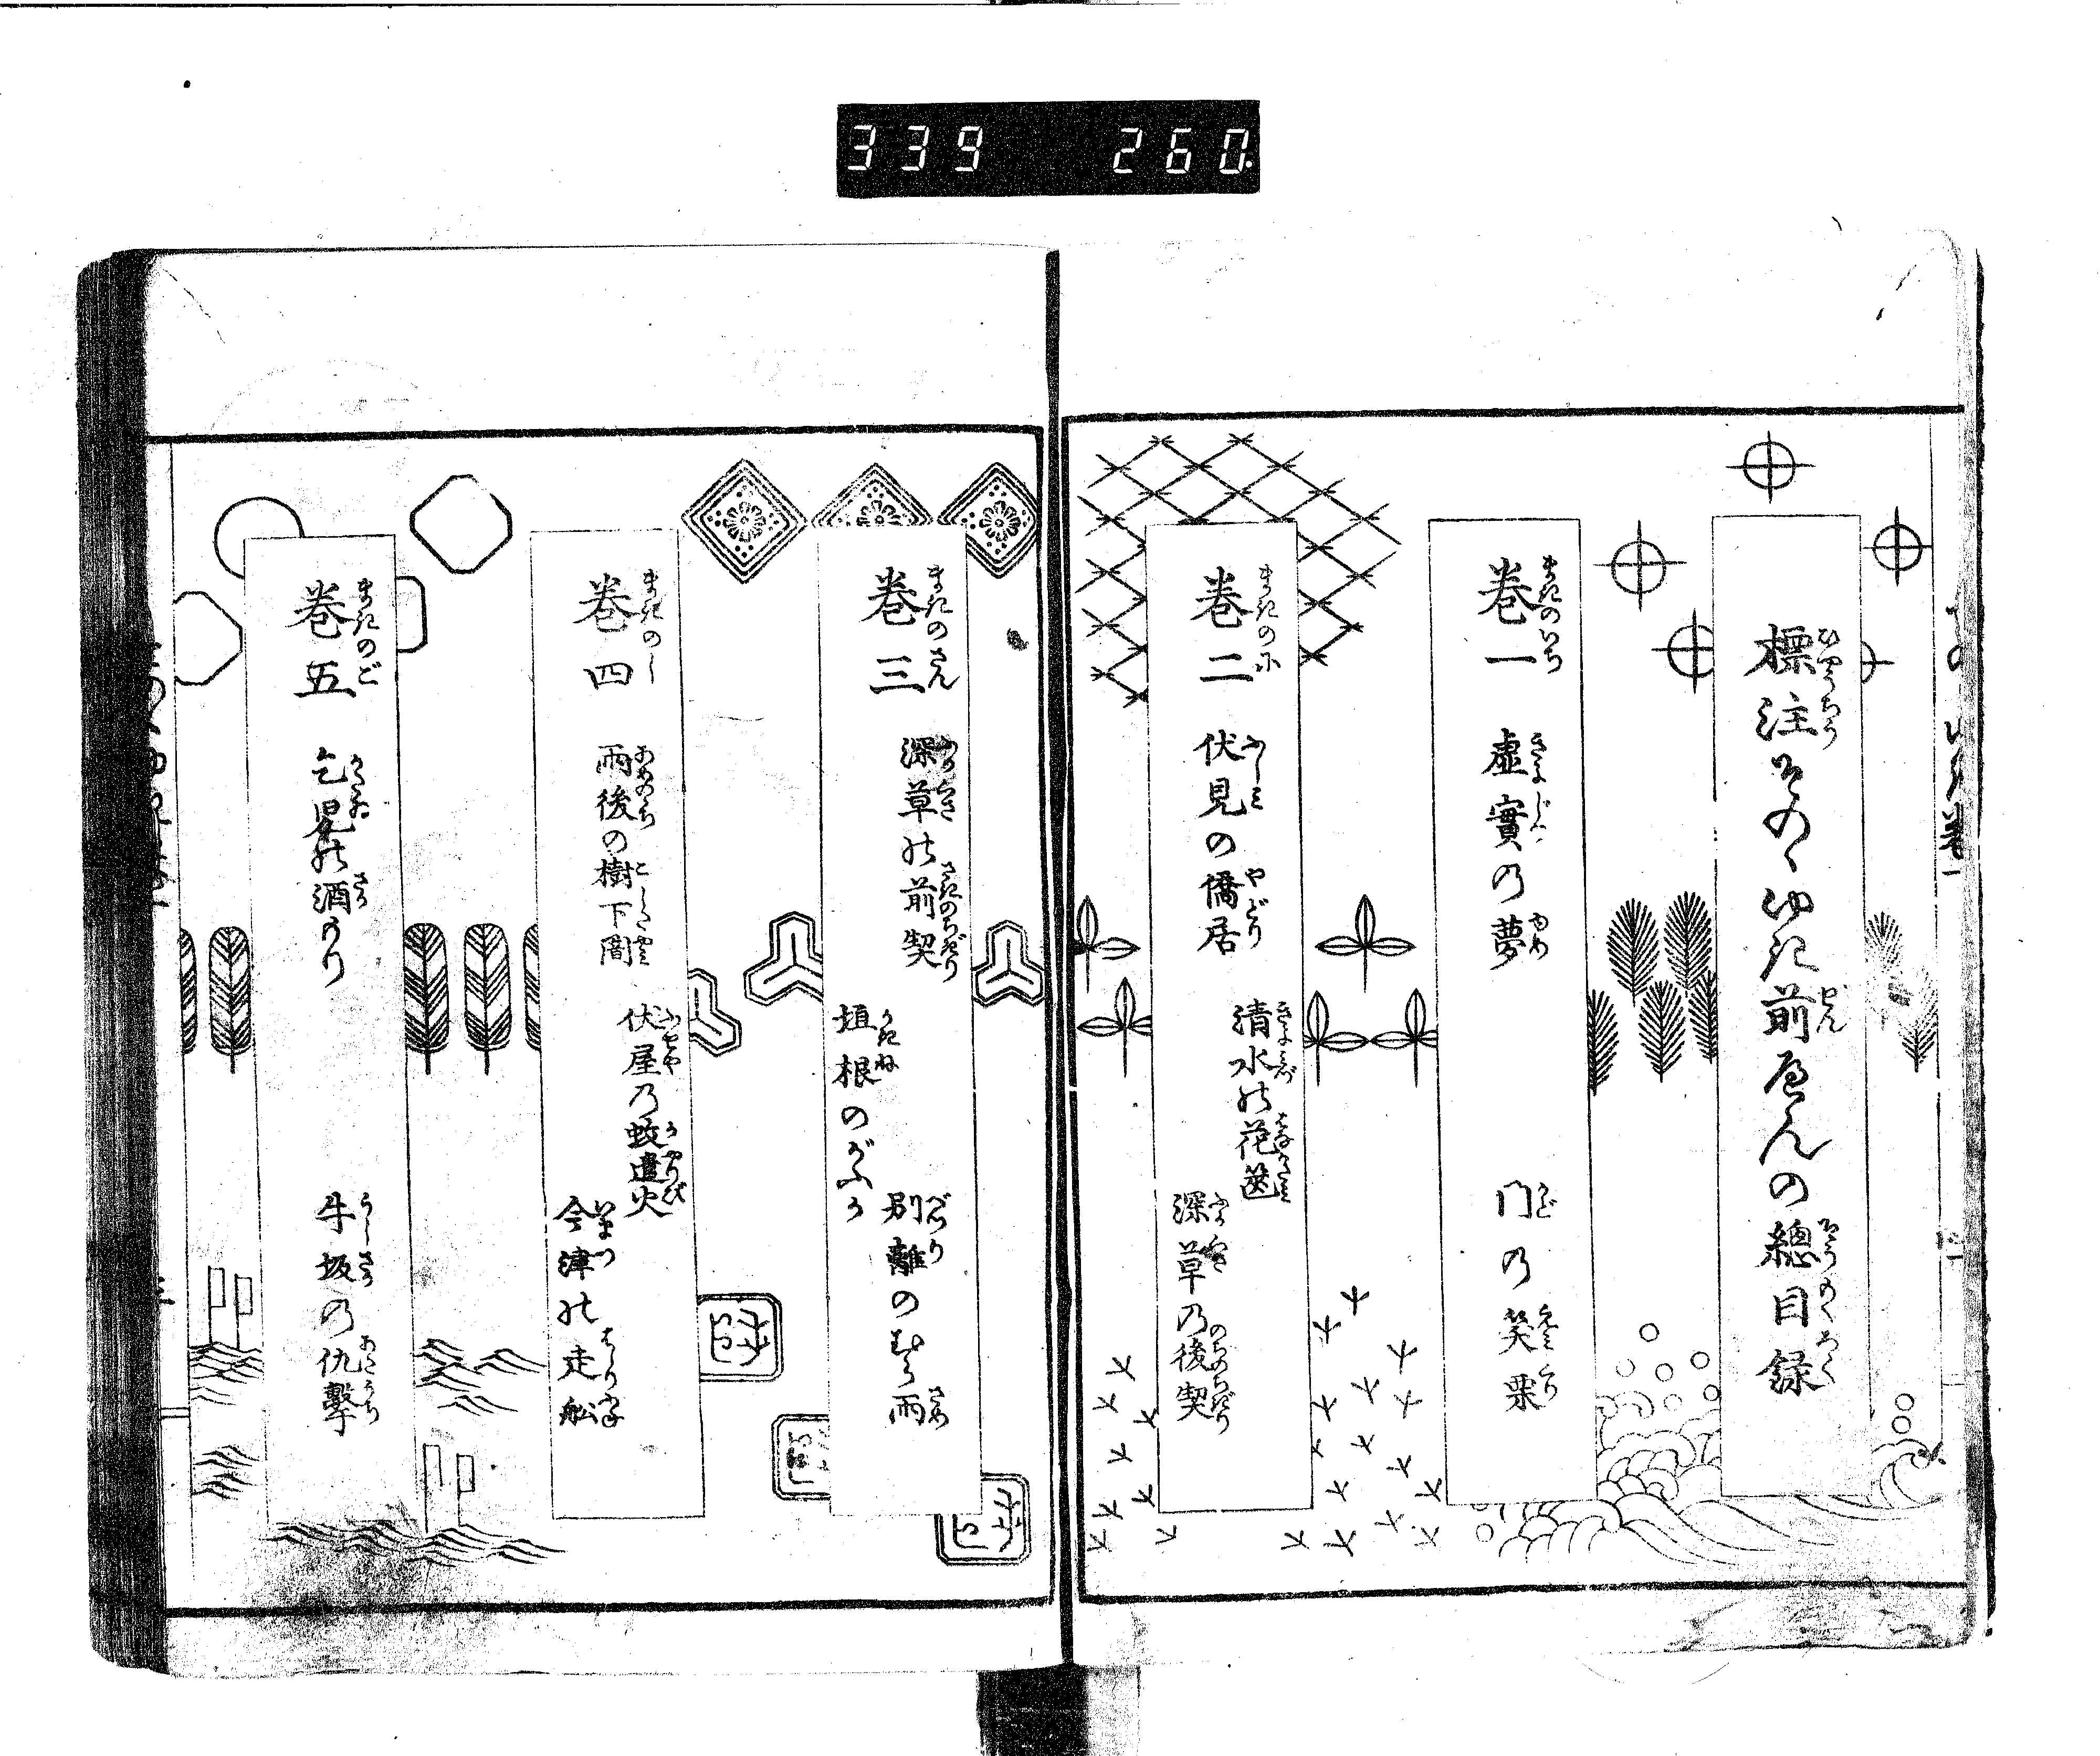 339 260
標注そのゝゆき前へんの總目録
巻一 虚實の夢 門の笑栗
巻二 伏見の僑居 清水の花筺 深草の後契
巻三 深草の前契 垣根のがふか 別離のむら雨
巻四 雨後の樹下闇 伏屋の蚊遣火 今津の走舩
巻五 乞児の酒もり 牛坂の仇撃